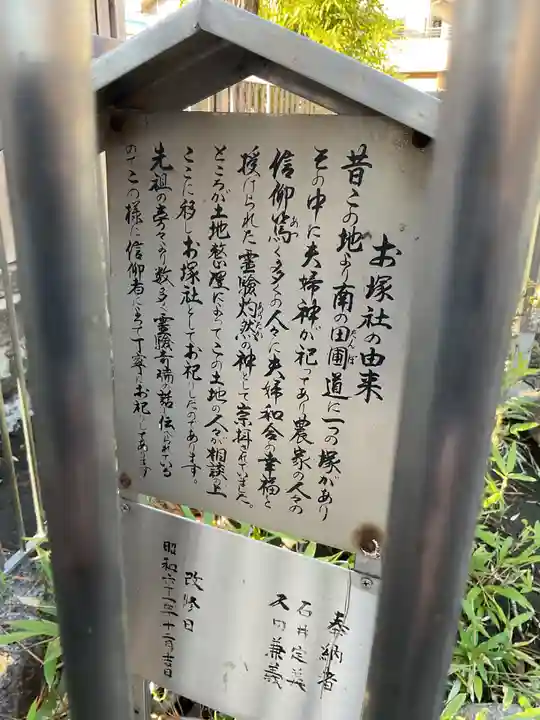 お塚社の由来
昔この地より南の田圃道に一つの塚があり
たんぼ
その中に夫婦神が祀ってあり農家の人々の
信仰篤く多くの人々に夫婦和合の幸福と
あつ
授けられた霊験灼然の神として崇拝されていました。
あらたか
ところが土地整理によってこの土地の人々が相談の上
ここに移しお塚社としてお祀りしたのであります。
先祖の方々より数多く霊験奇瑞の話し伝へられている
のでこの様に信仰者によって丁寧にお祀りしてあります
奉納者
石井定義
久田兼義
改修日
昭和六十一年十二月吉日